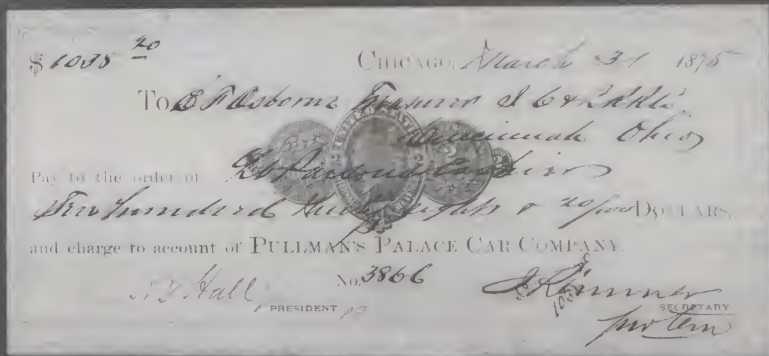 $1038 20 CHICAGO, March 31 1875
To E F Osborne Treasurer I C & L RR Co
Cincinnati Ohio
Pay to the order of Parsons Cashier
Ten hundred thirty eight & 20/100 DOLLARS,
and charge to account of PULLMAN'S PALACE CAR COMPANY.
No. 3866
Hall
PRESIDENT
SECRETARY
pro tem